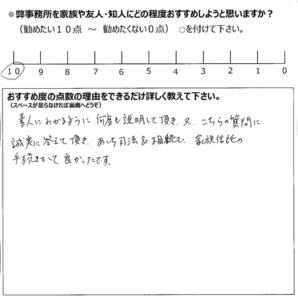 ●弊事務所を家族や友人・知人にどの程度おすすめしようと思いますか？
（勧めたい１０点 ～ 勧めたくない０点） ○を付けて下さい。
10 9 8 7 6 5 4 3 2 1 0
おすすめ度の点数の理由をできるだけ詳しく教えて下さい。
（スペースが足らなければ裏面へどうぞ）
素人にわかるように何度も説明して頂き、又、こちらの質問に
誠実に答えて頂き、あいち司法&相続で、家族信託の
手続きをして良かったです。